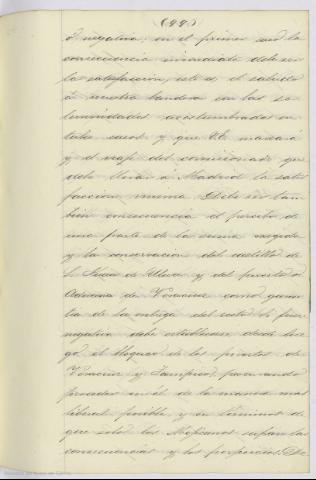 (99)
ó negativa; en el primer será la
consecuencia inmediata deberse
la satisfacción, esto es el saludo
á nuestra bandera con las so-
lemnidades acostumbradas en
tales casos y que
y el viaje del comisionado que
debe llevar á Madrid la satis
facción misma. Debe ser tam-
bién consecuencia el percibo de
una parte de la suma exigida
y la conservación del castillo de
S. Juan de Ulloa y del puerto ó
Aduana de Veracruz como garan-
tia de la entrega del resto. Si fuere
negativa debe establecerse desde lue-
go el bloqueo de los puertos de
Veracruz y Tampico, procurando
proceder en él de la manera mas
liberal posible, y en terminos de
que solo los Mejicanos sufran las
consecuencias y los perjuicios. De